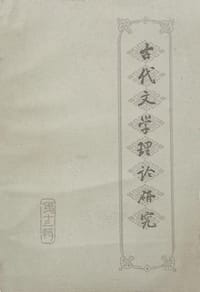 古代文学理论研究
第十三辑